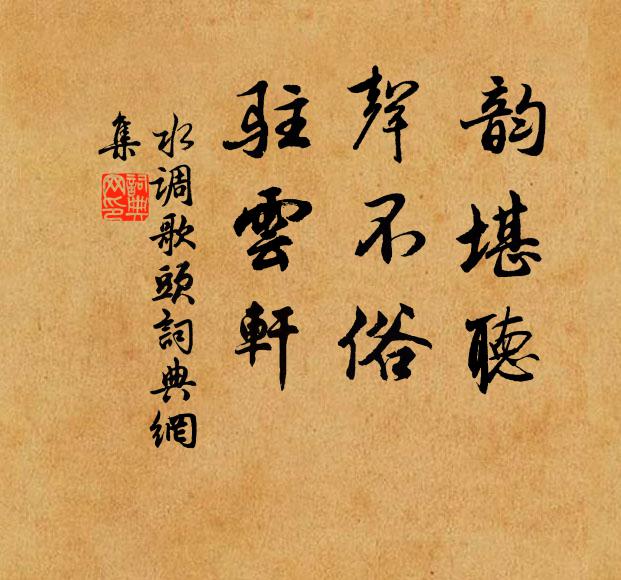 韵堪聽
聲不俗
駐雲軒
水调歌頭詞典網
集
詞典
网印